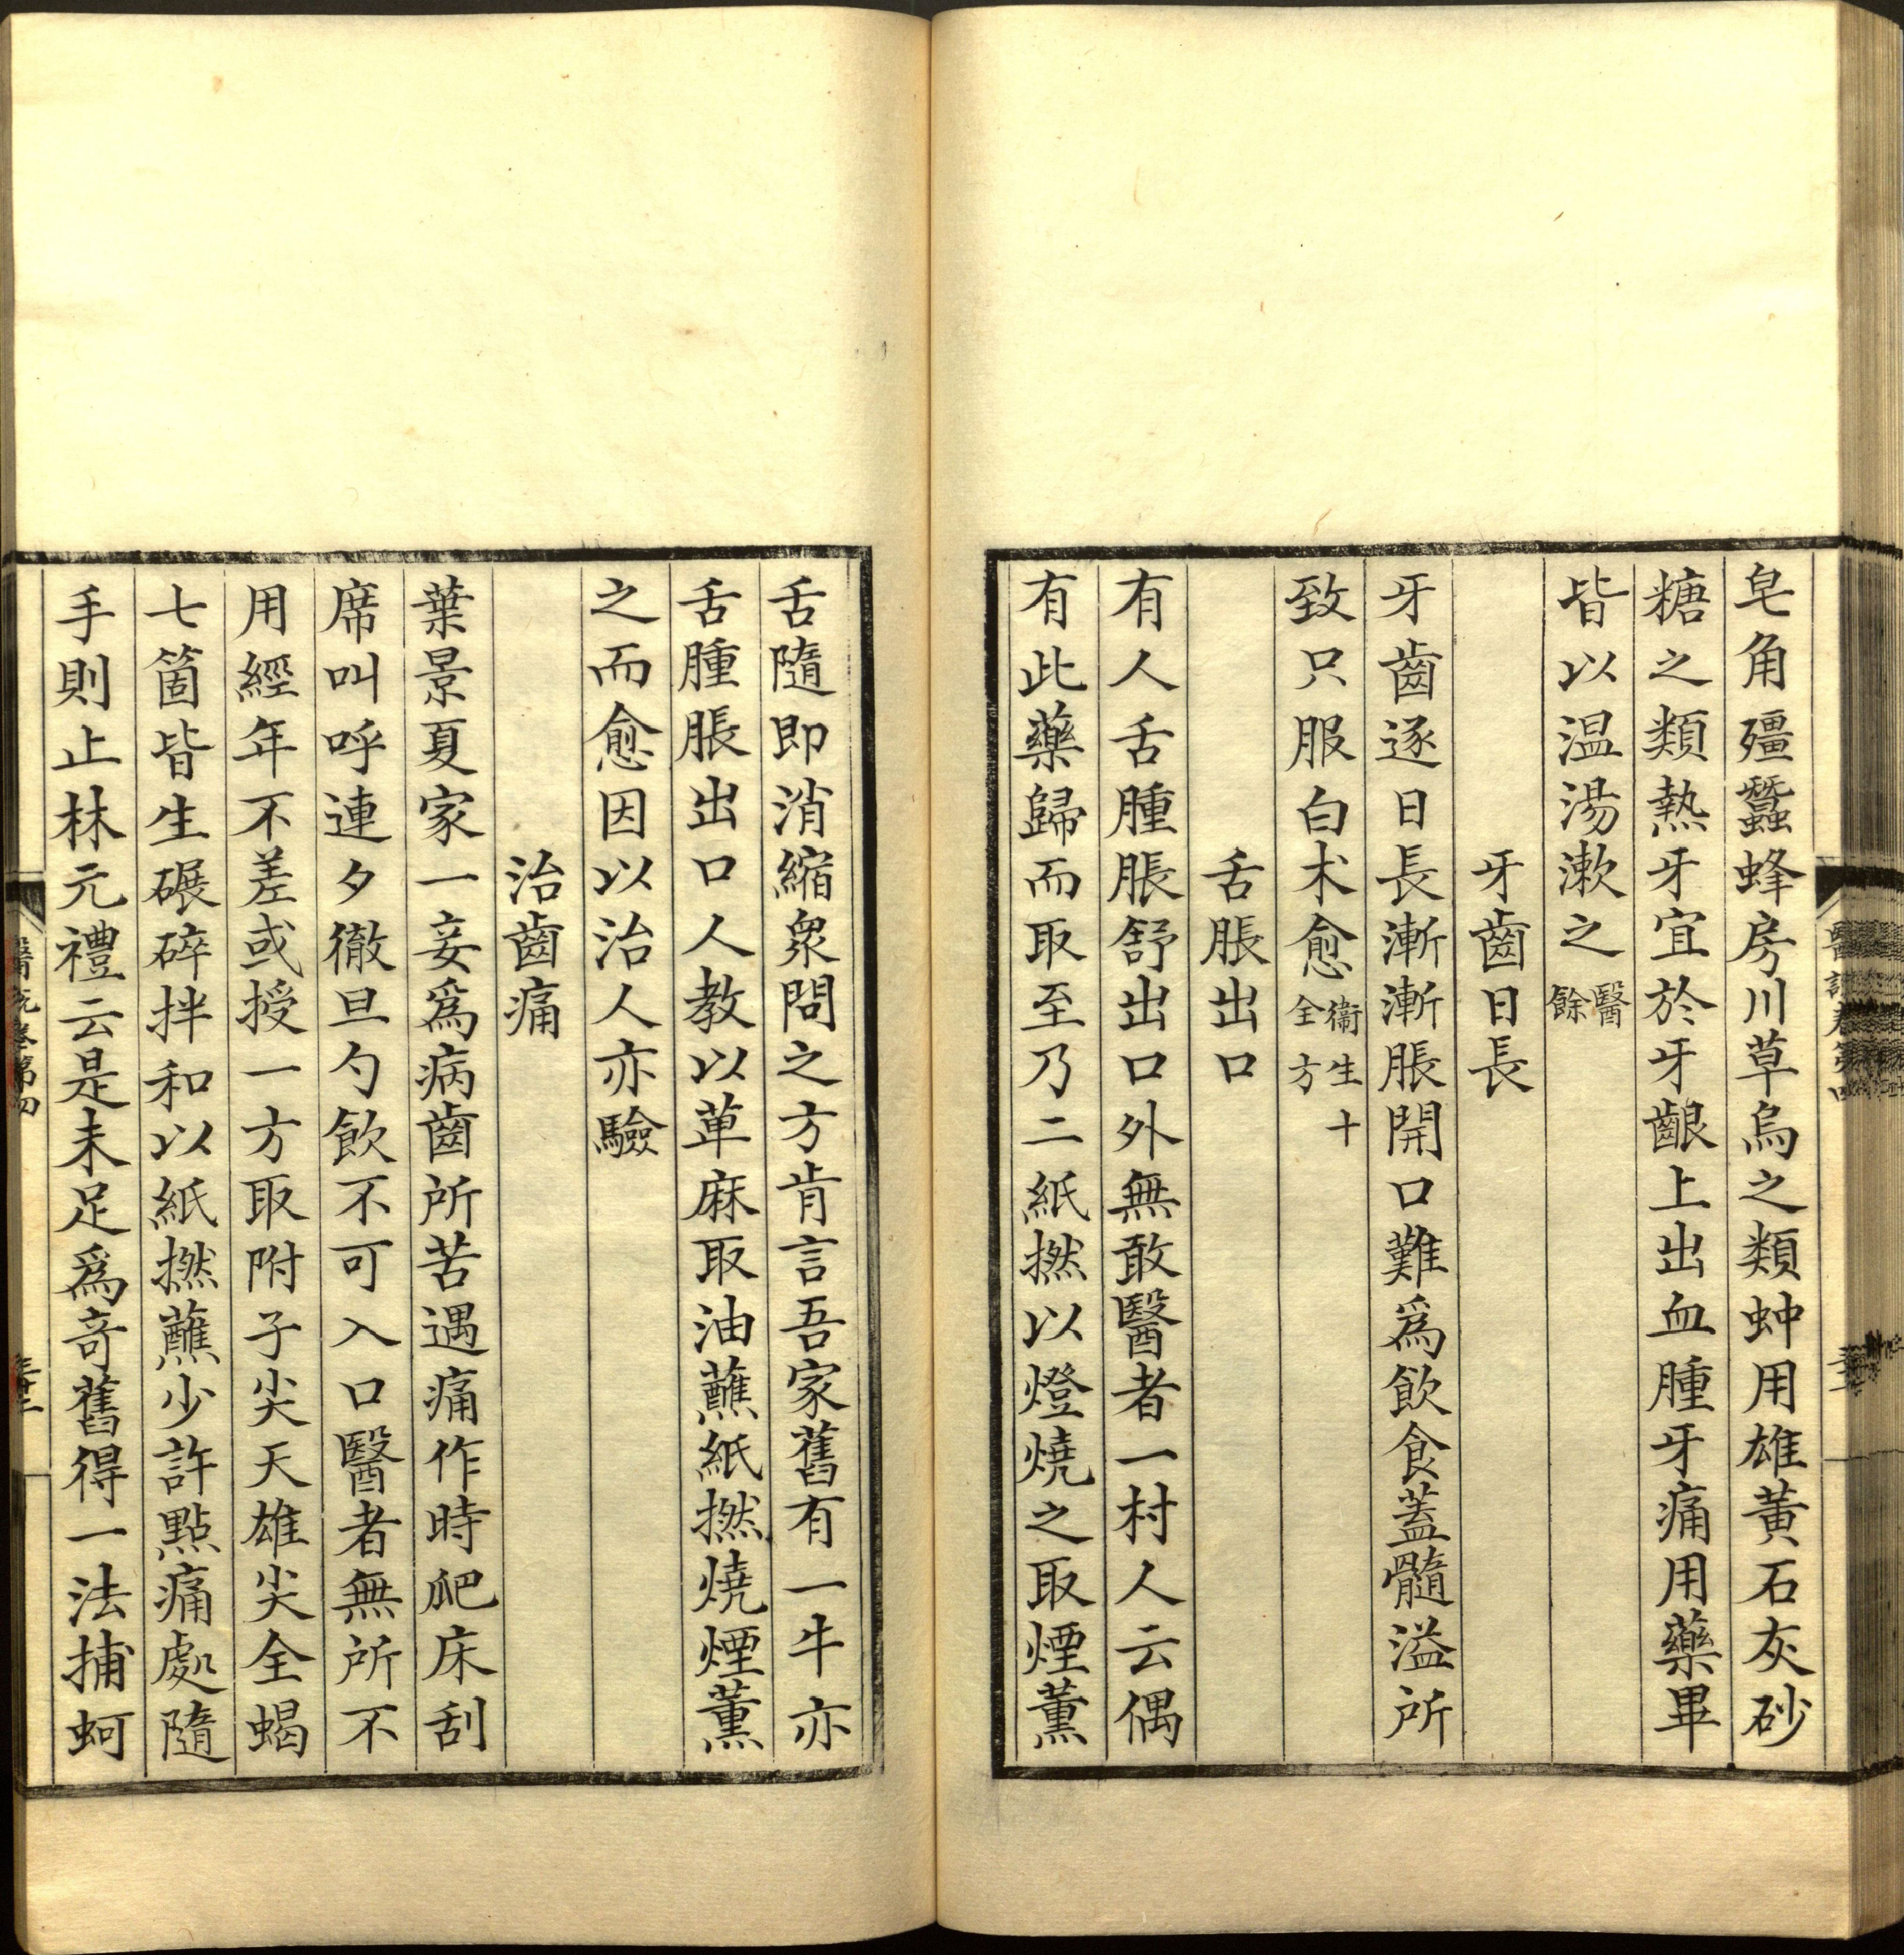 皂角殭蠶蜂房川草烏之類蚛用雄黃石灰砂
糖之類熱牙宜於牙齦上出血腫牙痛用藥畢
皆以温湯漱之醫餘
牙齒日長
牙齒逐日長漸漸脹開口難爲飲食蓋髓溢所
致只服白术愈衞生十全方
舌脹出口
有人舌腫脹舒出口外無敢醫者一村人云偶
有此藥歸而取至乃二紙撚以燈燒之取煙薰
舌隨即消縮衆問之方肯言吾家舊有一牛亦
舌腫脹出口人教以萆麻取油蘸紙撚燒煙薰
之而愈因以治人亦驗
治齒痛
葉景夏家一妾爲病齒所苦遇痛作時爬床刮
席叫呼連夕徹旦勺飲不可入口醫者無所不
用經年不差或授一方取附子尖天雄尖全蝎
七箇皆生碾碎拌和以紙撚蘸少許點痛處隨
手則止林元禮云是未足爲奇舊得一法捕蚵
醫説卷第四